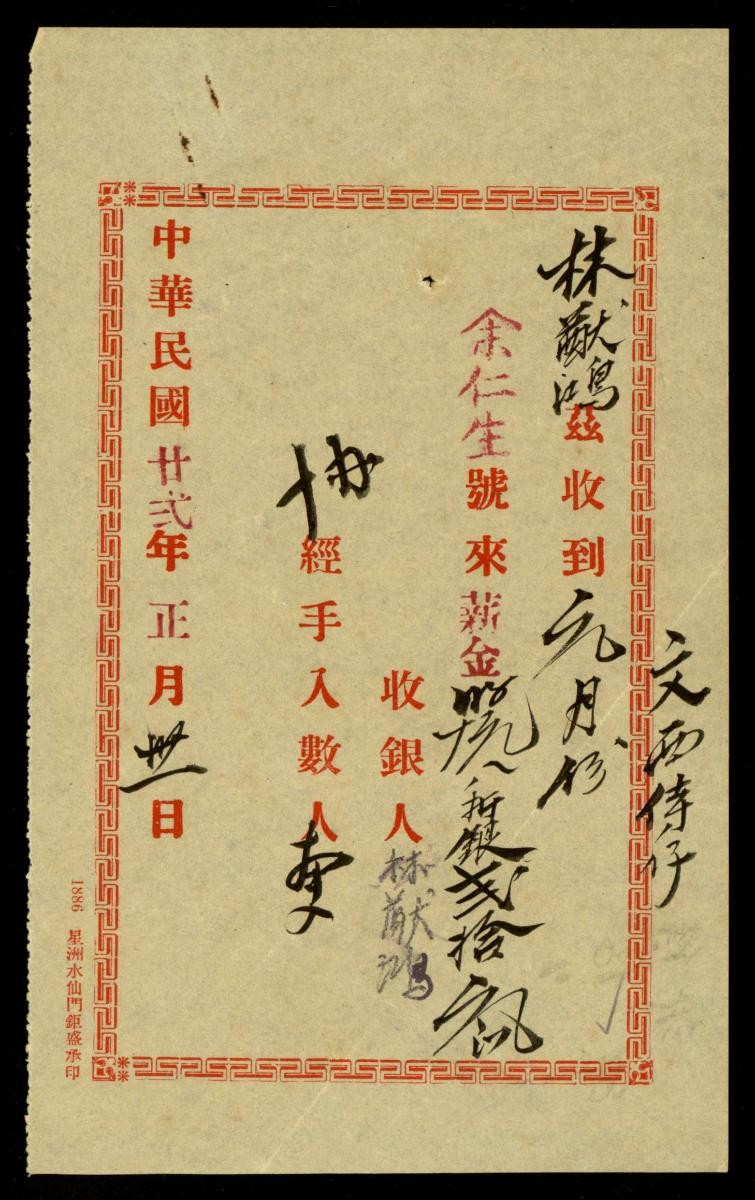 文西侍仔
林猷鴻茲收到元月份
余仁生號來薪金新銀弍拾
收銀人林猷鴻
協經手入數人
中華民國廿弍年正月卅一日
1886 星洲水仙門鉅盛承印